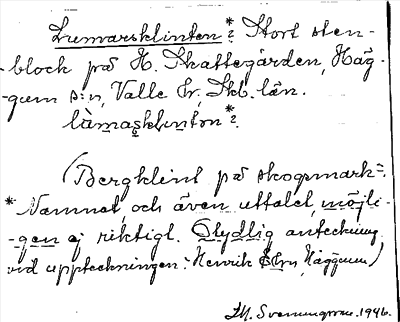 Lumarsklinten*? Stort sten-
-block på H. Skattegården, Häg-
-gum s:n, Valle hr, Skb. län.
làmasklintən*?
(Bergklint på skogsmark=.
* Namnet, och även uttalet, möjli-
-gen ej riktigt. Otydlig anteckning
vid uppteckningen: Henrik Häggum)
1946.